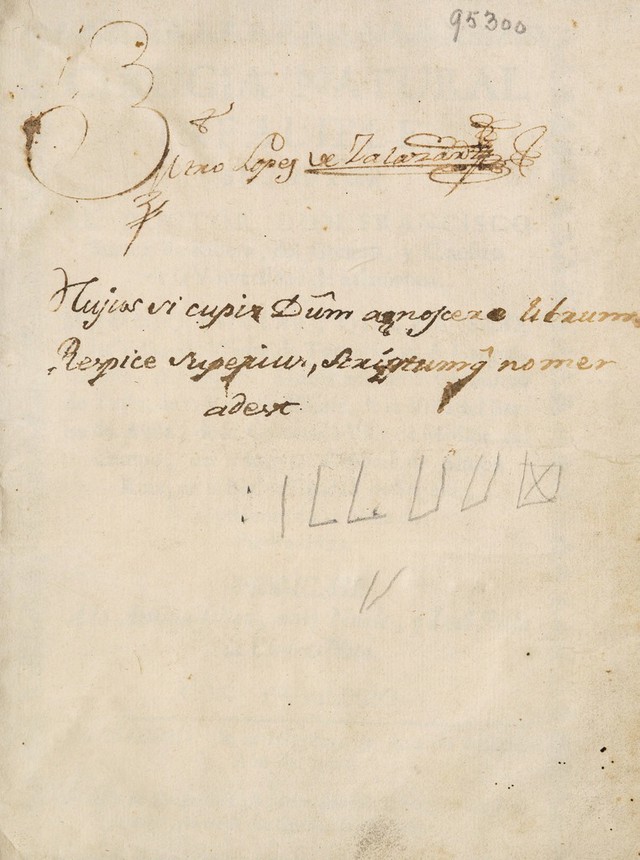 95300
Lopez de Zalazar
Hujus si cupis Dũm agnoscere librum
Respice superius, scriptumq̃ nomen
adest